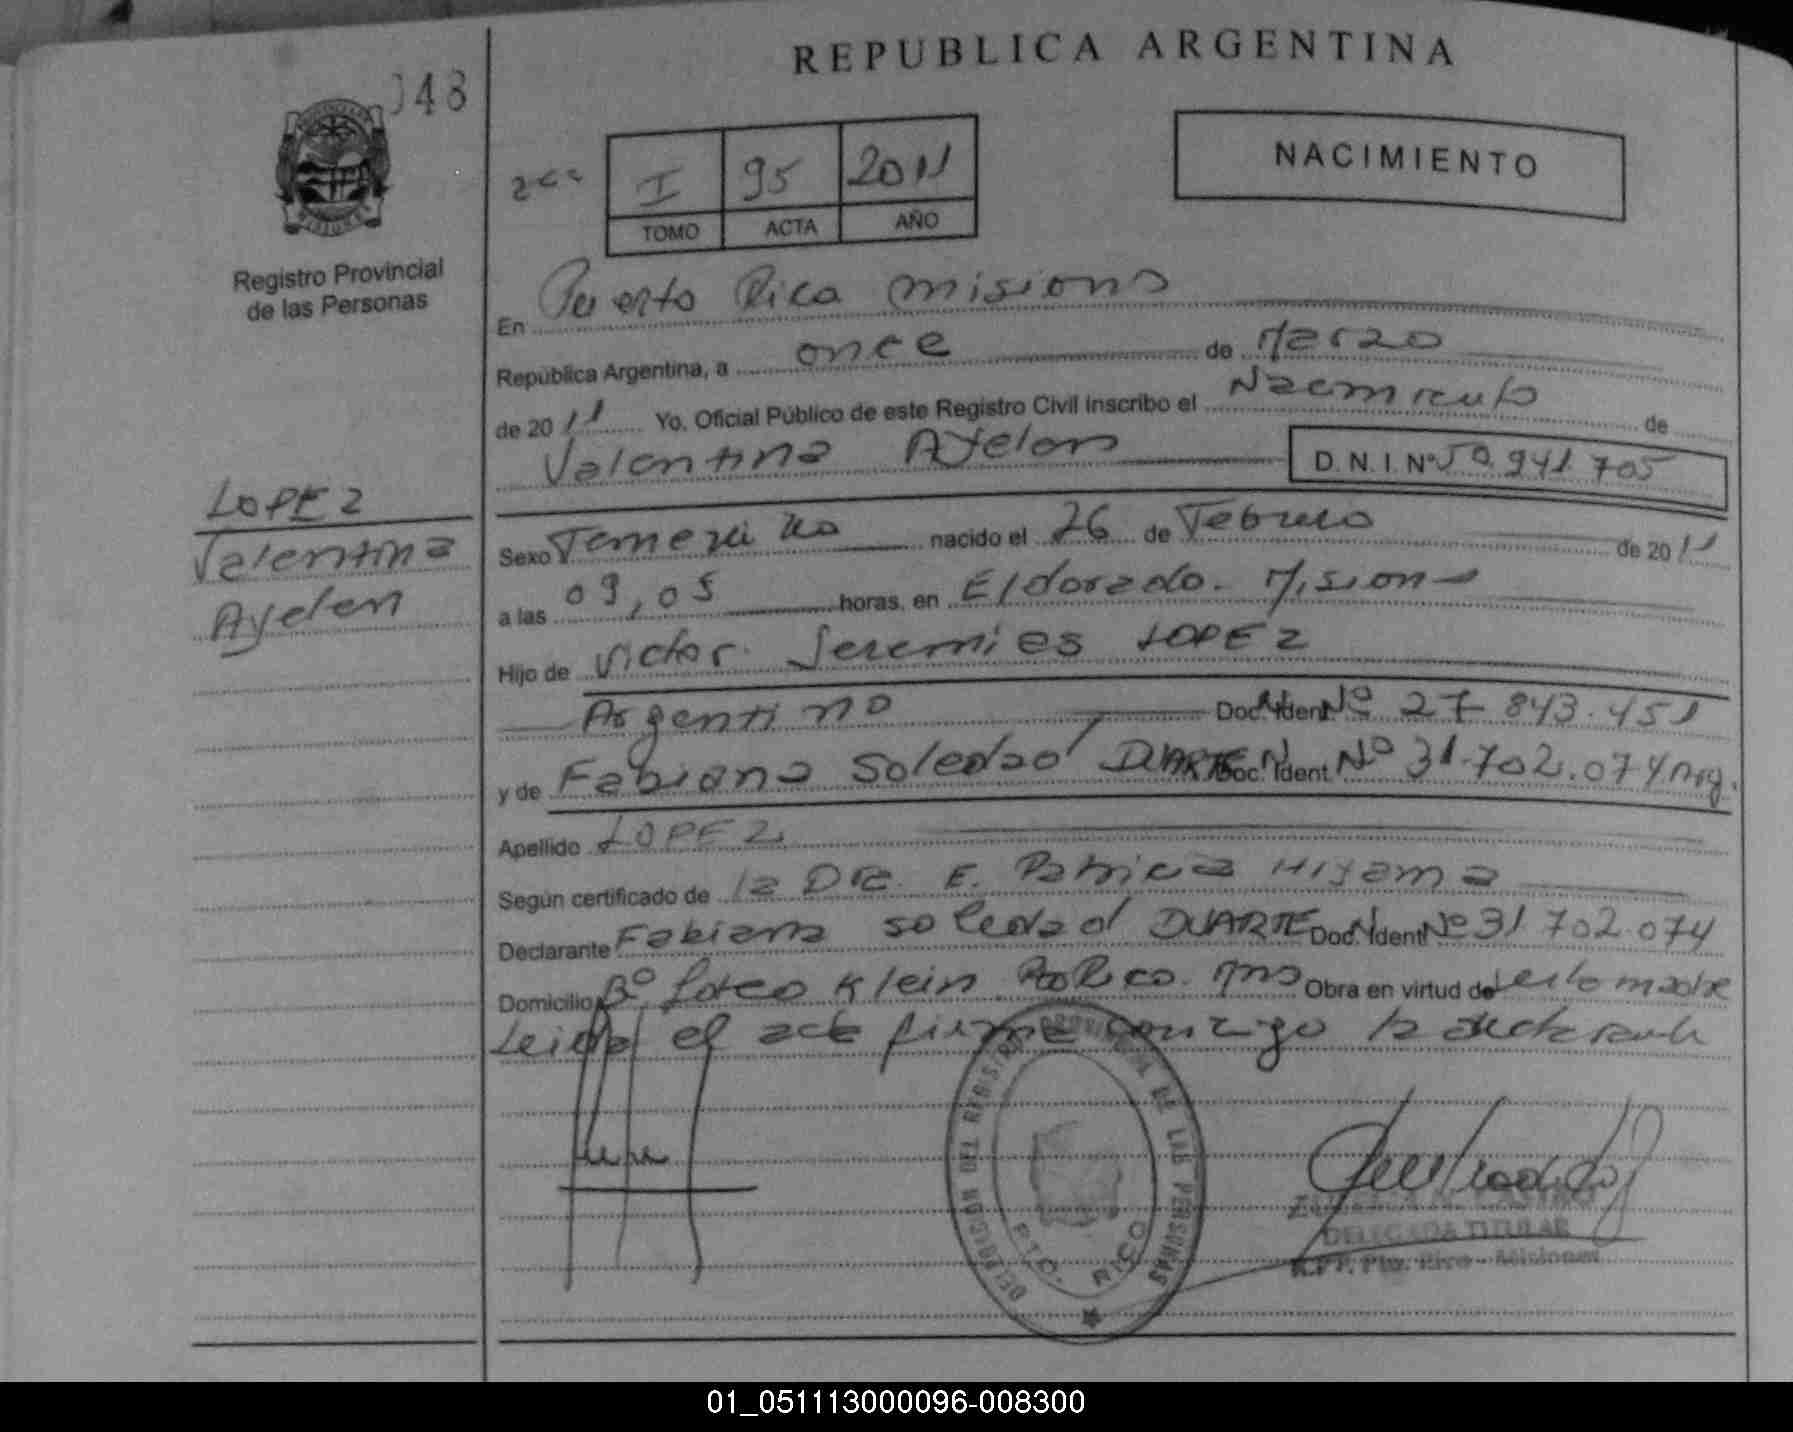 REPUBLICA ARGENTINA
048
NACIMIENTO
I 95 2011
TOMO ACTA AÑO
Registro Provincial
de las Personas
En Puerto Rico Misiones
República Argentina, a once de Marzo
de 2011 Yo, Oficial Público de este Registro Civil inscribo el Nacimiento de
Valentina Ayelen D.N.I. Nº 50.941.705
LOPEZ
Valentina
Ayelen
Sexo Femenino nacido el 26 de Febrero de 2011
a las 09,05 horas, en Eldorado. Misiones
Hijo de Victor Jeremias LOPEZ
Argentino Doc. Ident. Nº 27.843.451
y de Fabiana Soledad DUARTE Doc. Ident. Nº 31.702.074 Arg.
Apellido LOPEZ
Según certificado de la DRA. E. Patricia Hiyama
Declarante Fabiana Soledad DUARTE Doc. Ident. Nº 31.702.074
Domicilio Bº Loteo Klein Pto Rico. Mnes Obra en virtud de ser la madre
Leida el acta firma conmigo la declarante
DELEGACION DEL REGISTRO PROVINCIAL DE LAS PERSONAS
PTO. RICO
CASTRO
DELEGADA TITULAR
R.P.P. Pto. Rico - Misiones
01_051113000096-008300